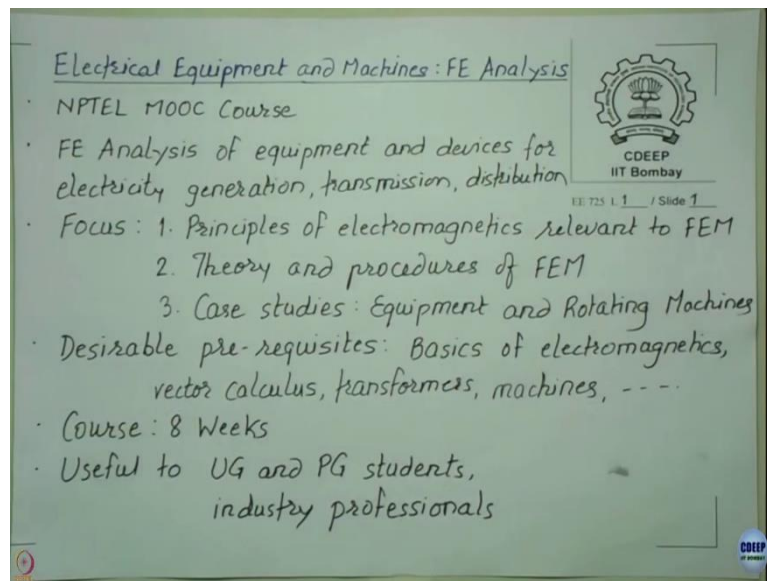 Electrical Equipment and Machines : FE Analysis
· NPTEL MOOC Course
· FE Analysis of equipment and devices for
electricity generation, transmission, distribution
CDEEP
IIT Bombay
EE 725 L 1 / Slide 1
· Focus : 1. Principles of electromagnetics relevant to FEM
2. Theory and procedures of FEM
3. Case studies : Equipment and Rotating Machines
· Desirable pre-requisites: Basics of electromagnetics,
vector calculus, transformers, machines, ----.
· Course : 8 Weeks
· Useful to UG and PG students,
industry professionals
CDEEP
IIT BOMBAY